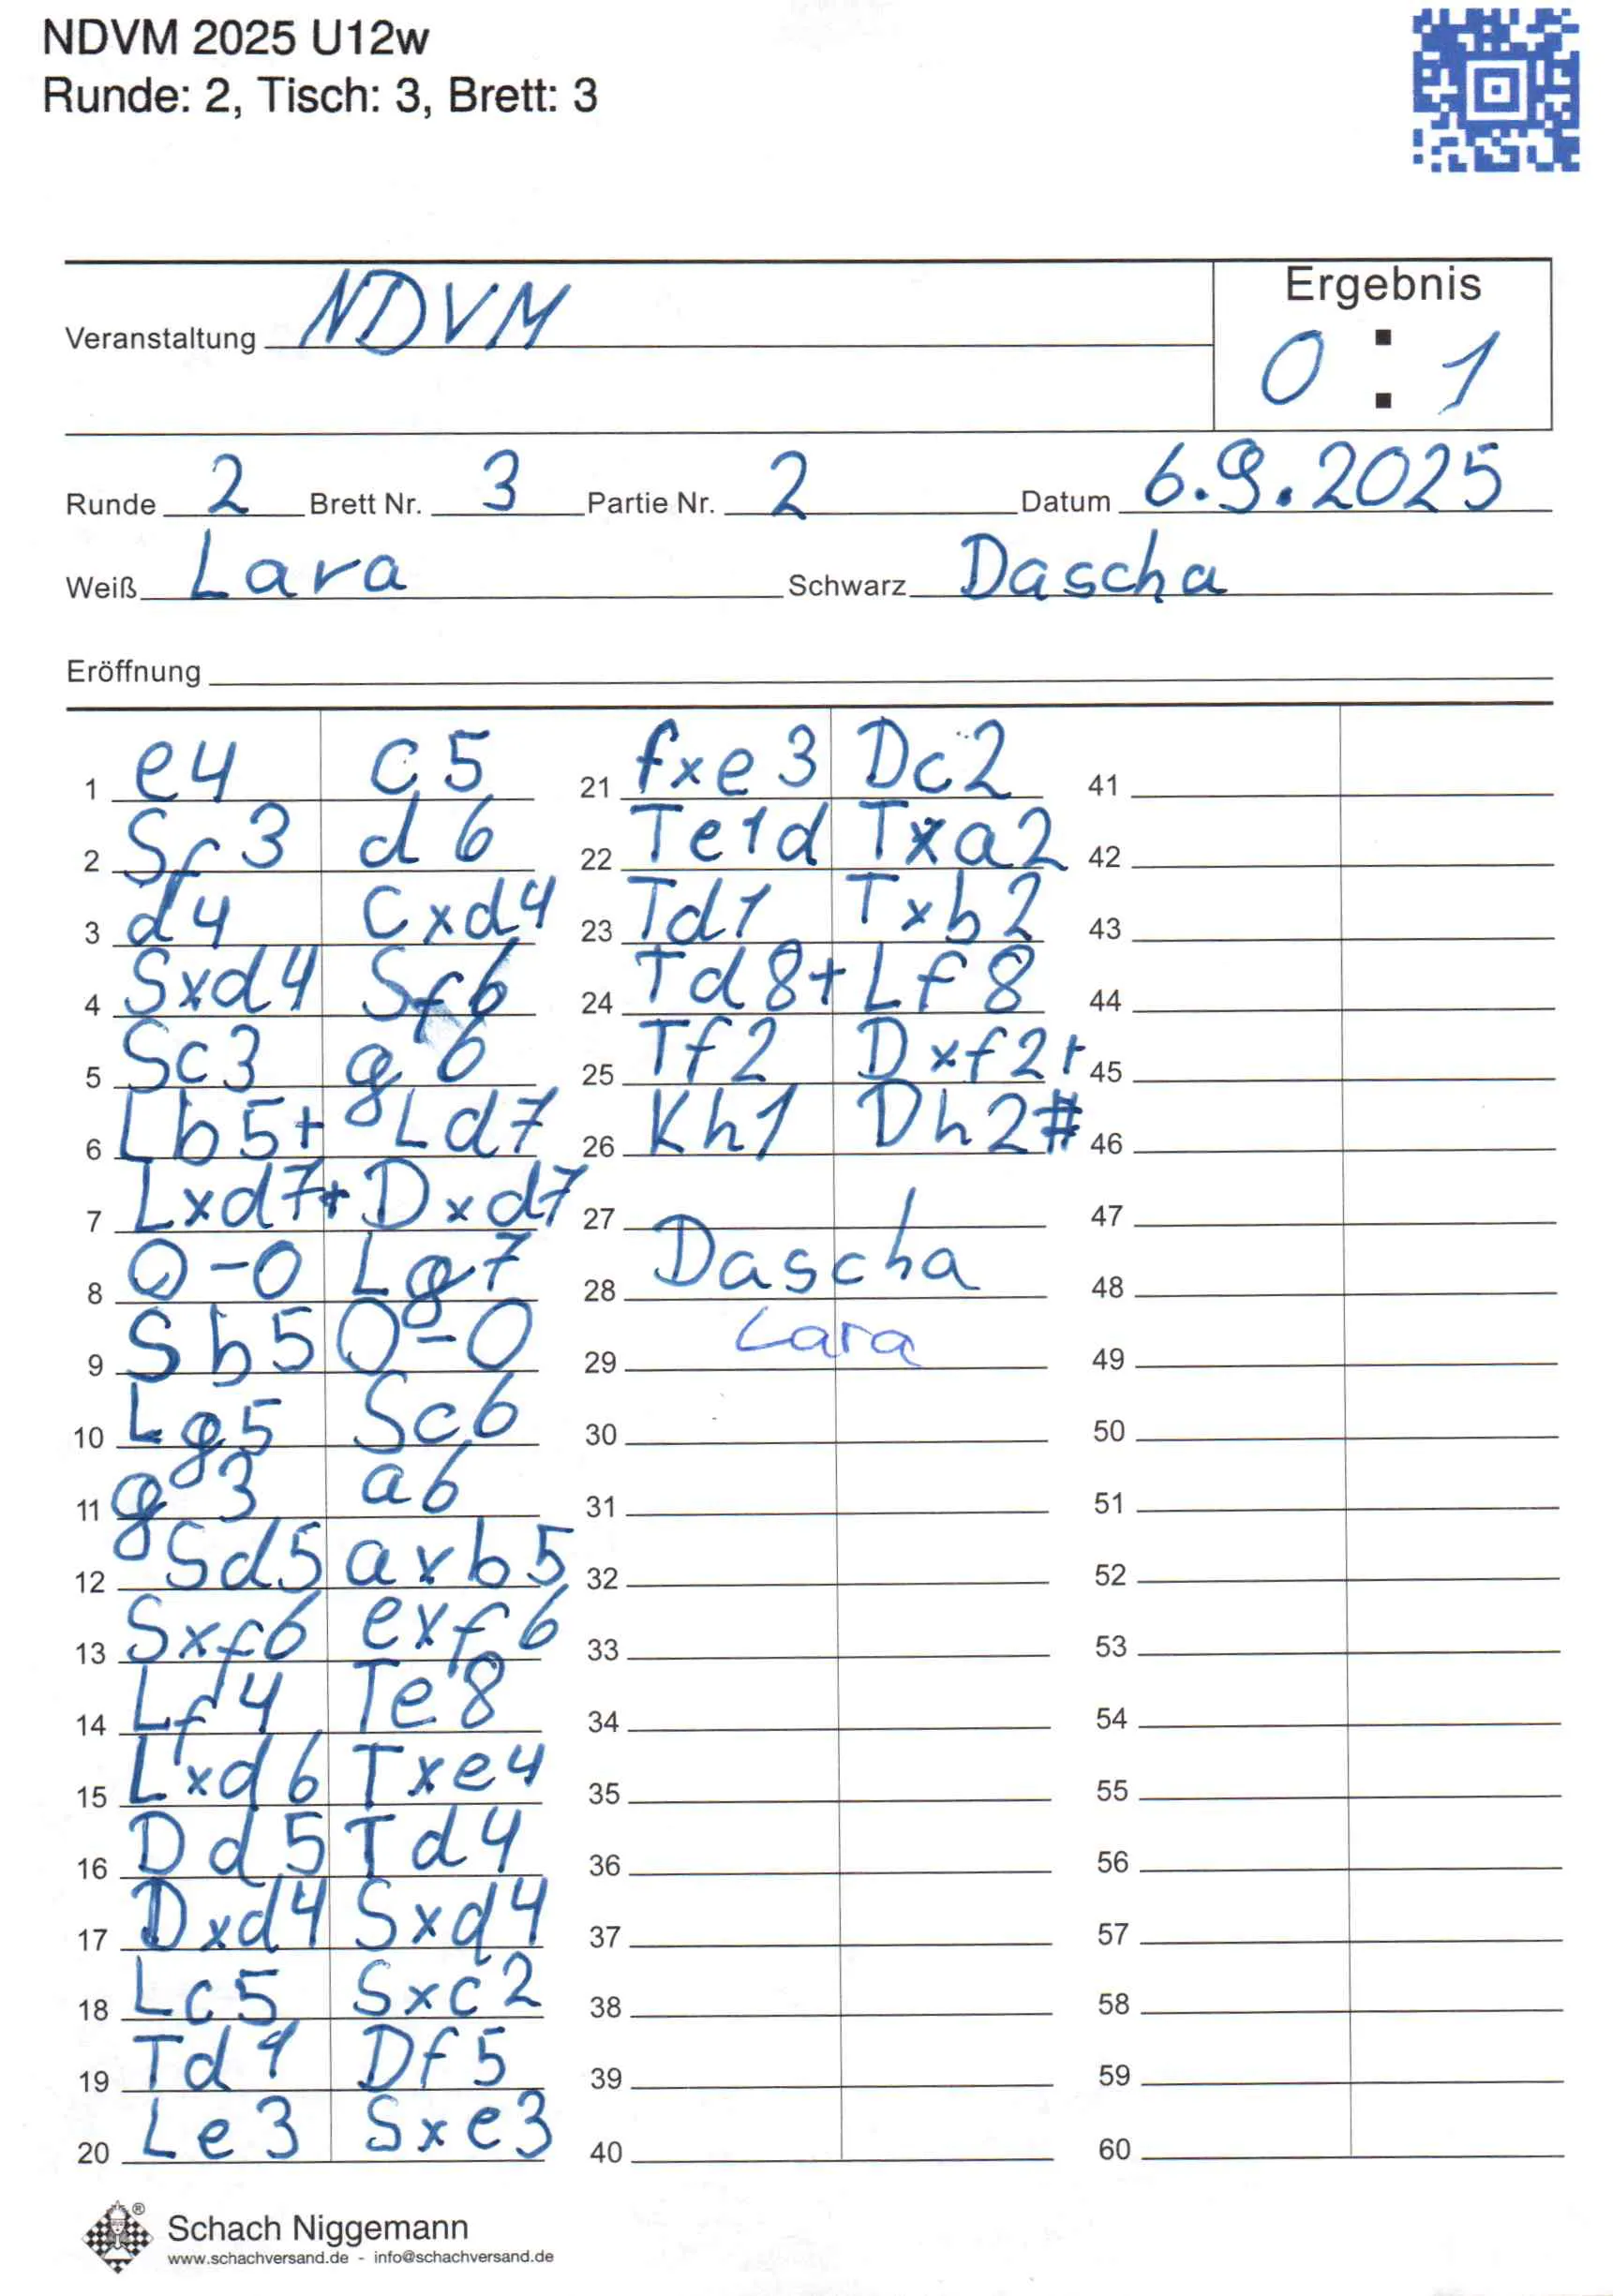 NDVM 2025 U12w
Runde: 2, Tisch: 3, Brett: 3
Veranstaltung NDVM
Ergebnis
0 : 1
Runde 2 Brett Nr. 3 Partie Nr. 2 Datum 6.9.2025
Weiß Lara Schwarz Dascha
Eröffnung
1 e4 c5 21 fxe3 Dc2 41
2 Sf3 d6 22 Te1d Txa2 42
3 d4 Cxd4 23 Td1 Txb2 43
4 Sxd4 Sf6 24 Td8+ Lf8 44
5 Sc3 g6 25 Tf2 Dxf2+ 45
6 Lb5+ Ld7 26 Kh1 Dh2# 46
7 Lxd7+ Dxd7 27 47
8 0-0 Lg7 28 Dascha 48
9 Sb5 0-0 29 Lara 49
10 Lg5 Sc6 30 50
11 g3 a6 31 51
12 Sd5 axb5 32 52
13 Sxf6 exf6 33 53
14 Lf4 Te8 34 54
15 Lxd6 Txe4 35 55
16 Dd5 Td4 36 56
17 Dxd4 Sxd4 37 57
18 Lc5 Sxc2 38 58
19 Td1 Df5 39 59
20 Le3 Sxe3 40 60
®
Schach Niggemann
www.schachversand.de - info@schachversand.de